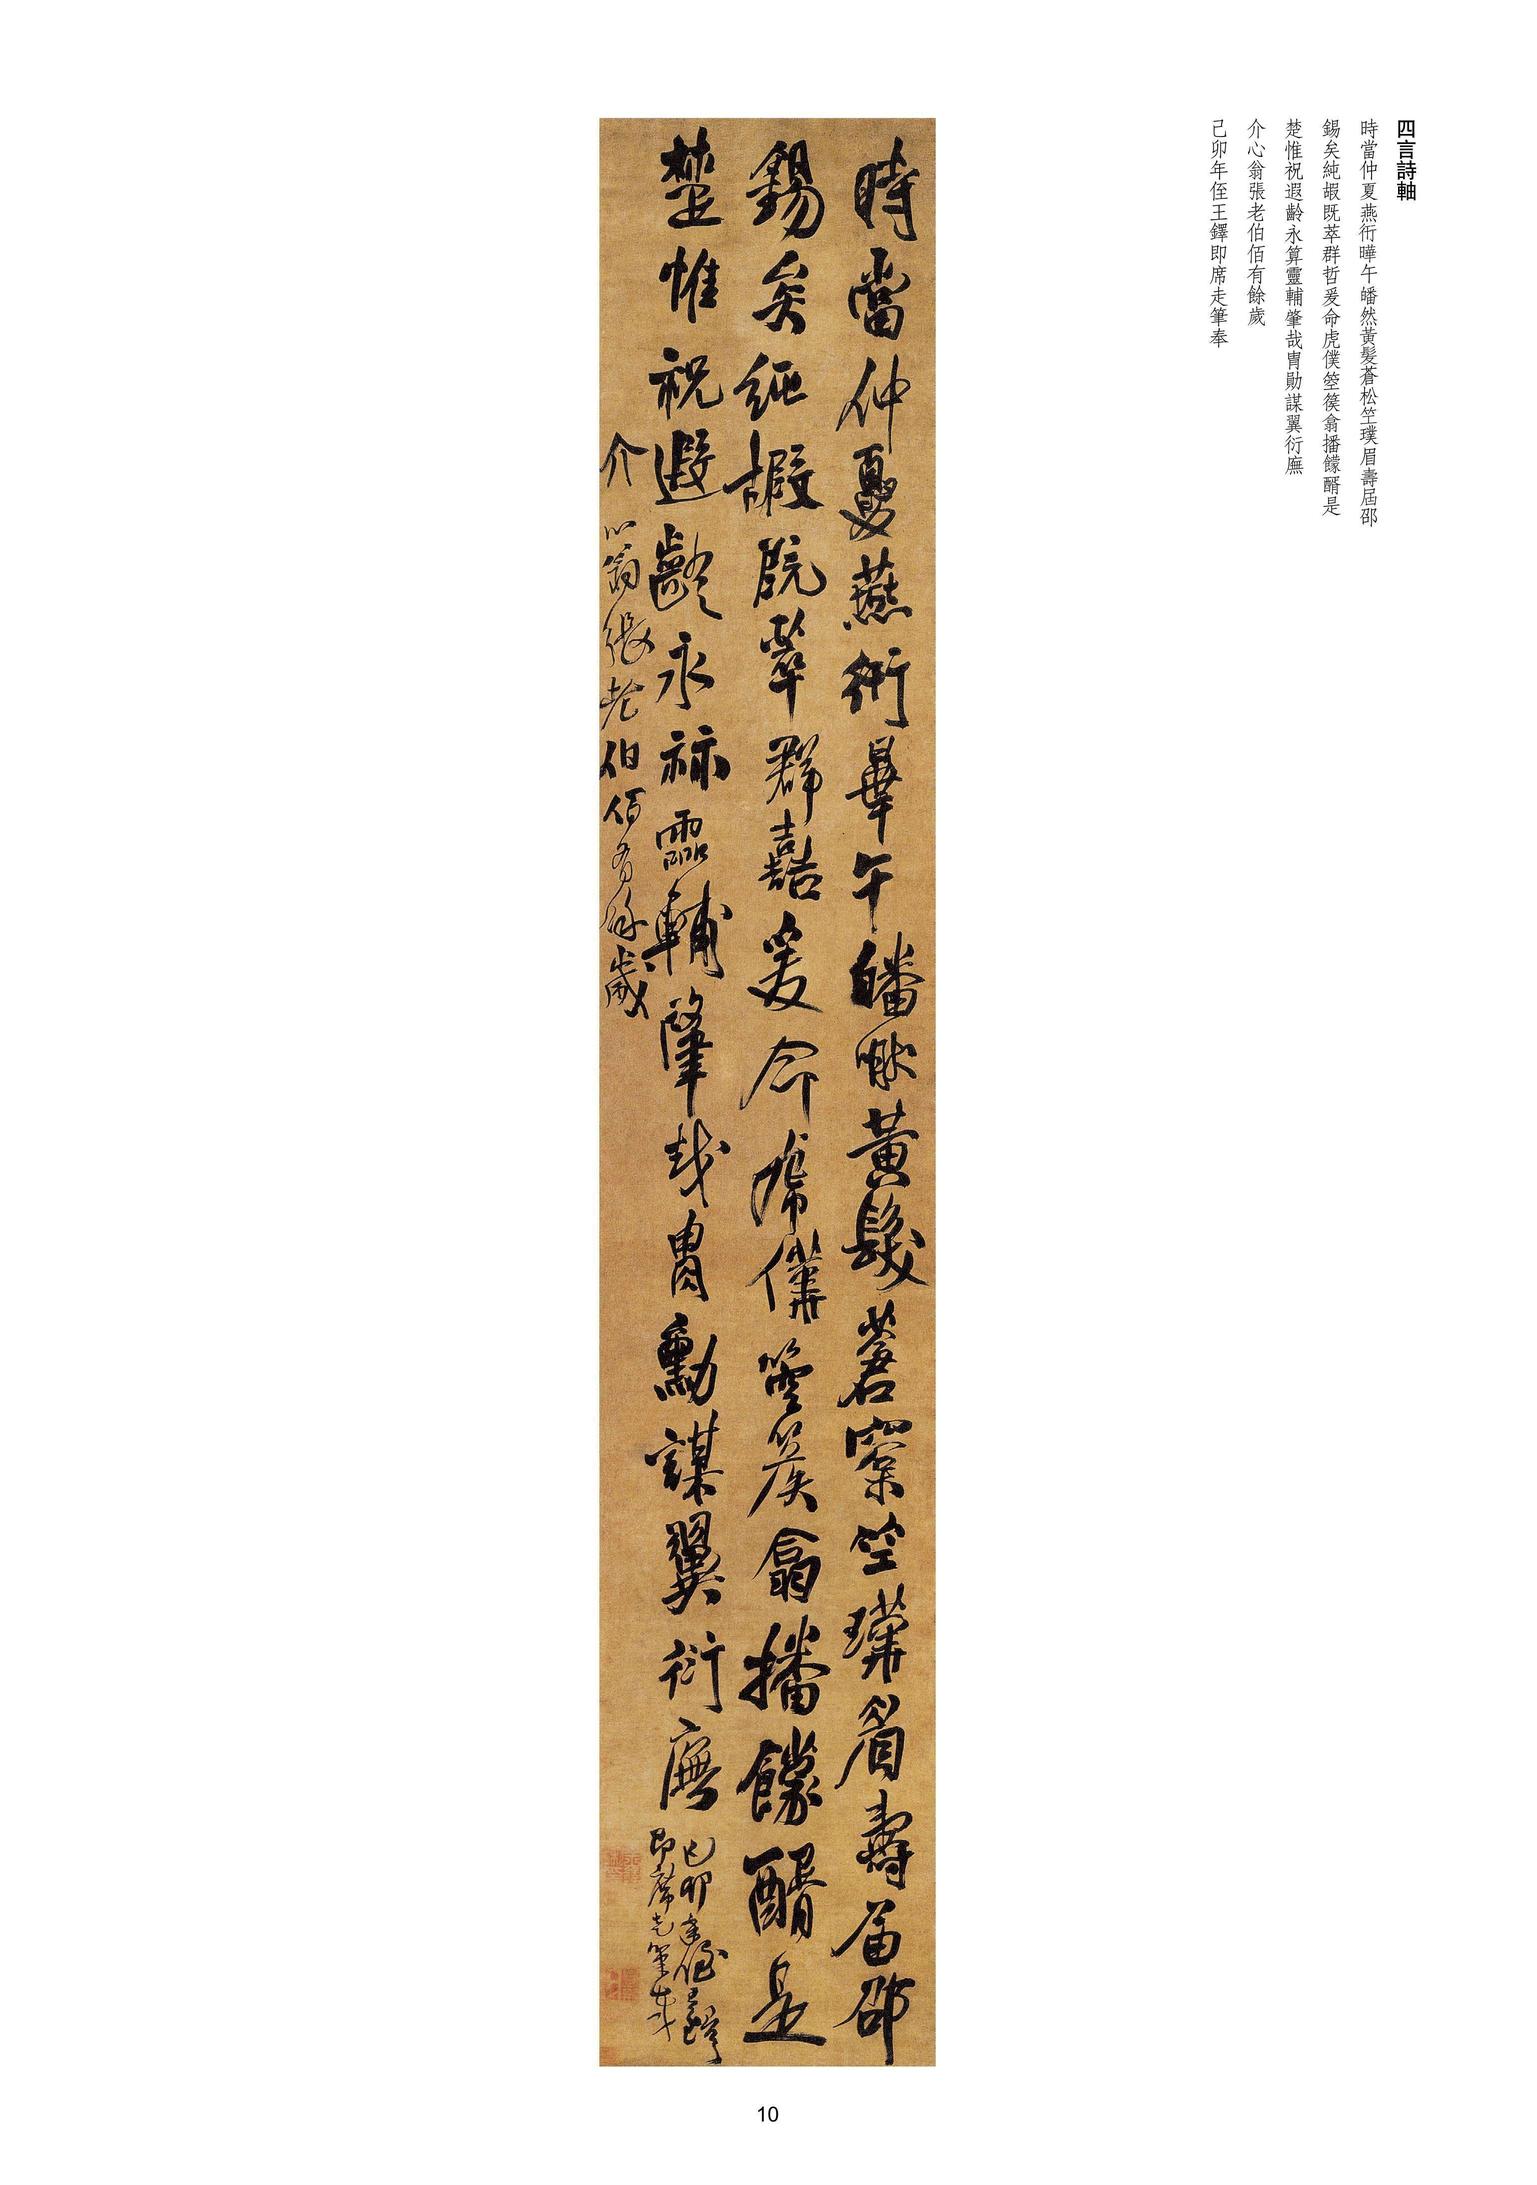 四言詩軸
時當仲夏燕衎曄午皤然黃髮蒼松竺璞眉壽屆邵
錫矣純嘏既萃群哲爰命虎僕箜篌翕播饛醑是
楚惟祝遐齡永算靈輔肇哉冑勛謀翼衍廡
介心翁張老伯佰有餘歲
己卯年侄王鐸即席走筆奉
時當仲夏燕衎曄午皤然黃髮蒼㮤竺璞眉壽屆邵
錫矣純嘏既萃群嚞爰命虎僕箜篌翕播饛醑是
楚惟祝遐齡永祘靈輔肇哉冑勳謀翼衍廡
己卯年侄王鐸
即席走筆奉
介心翁張老伯佰有餘歲
10